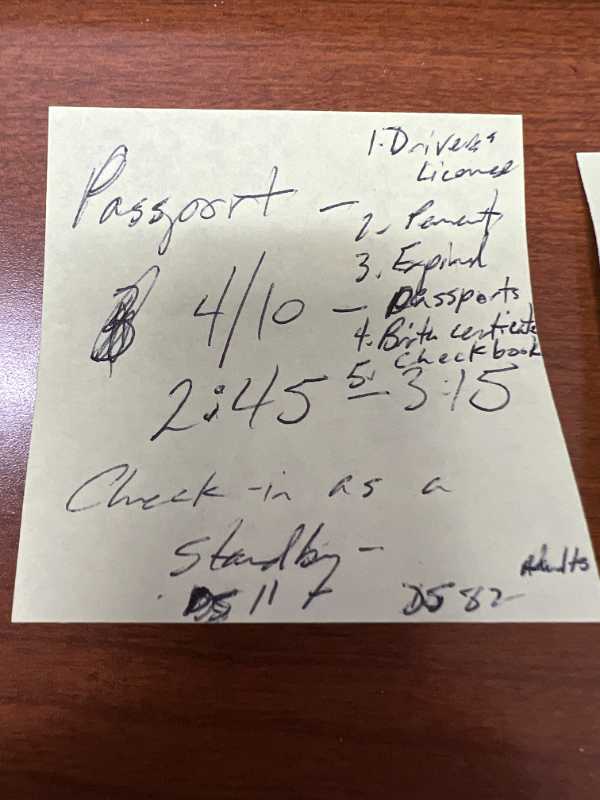 Passport -
1. Driver's
License
2. Parents
3. Expired
passports
4. Birth certificate
5. Checkbook
4/10 -
2:45 - 3:15
Check-in as a
Standby -
DS 11
DS 82
Adults